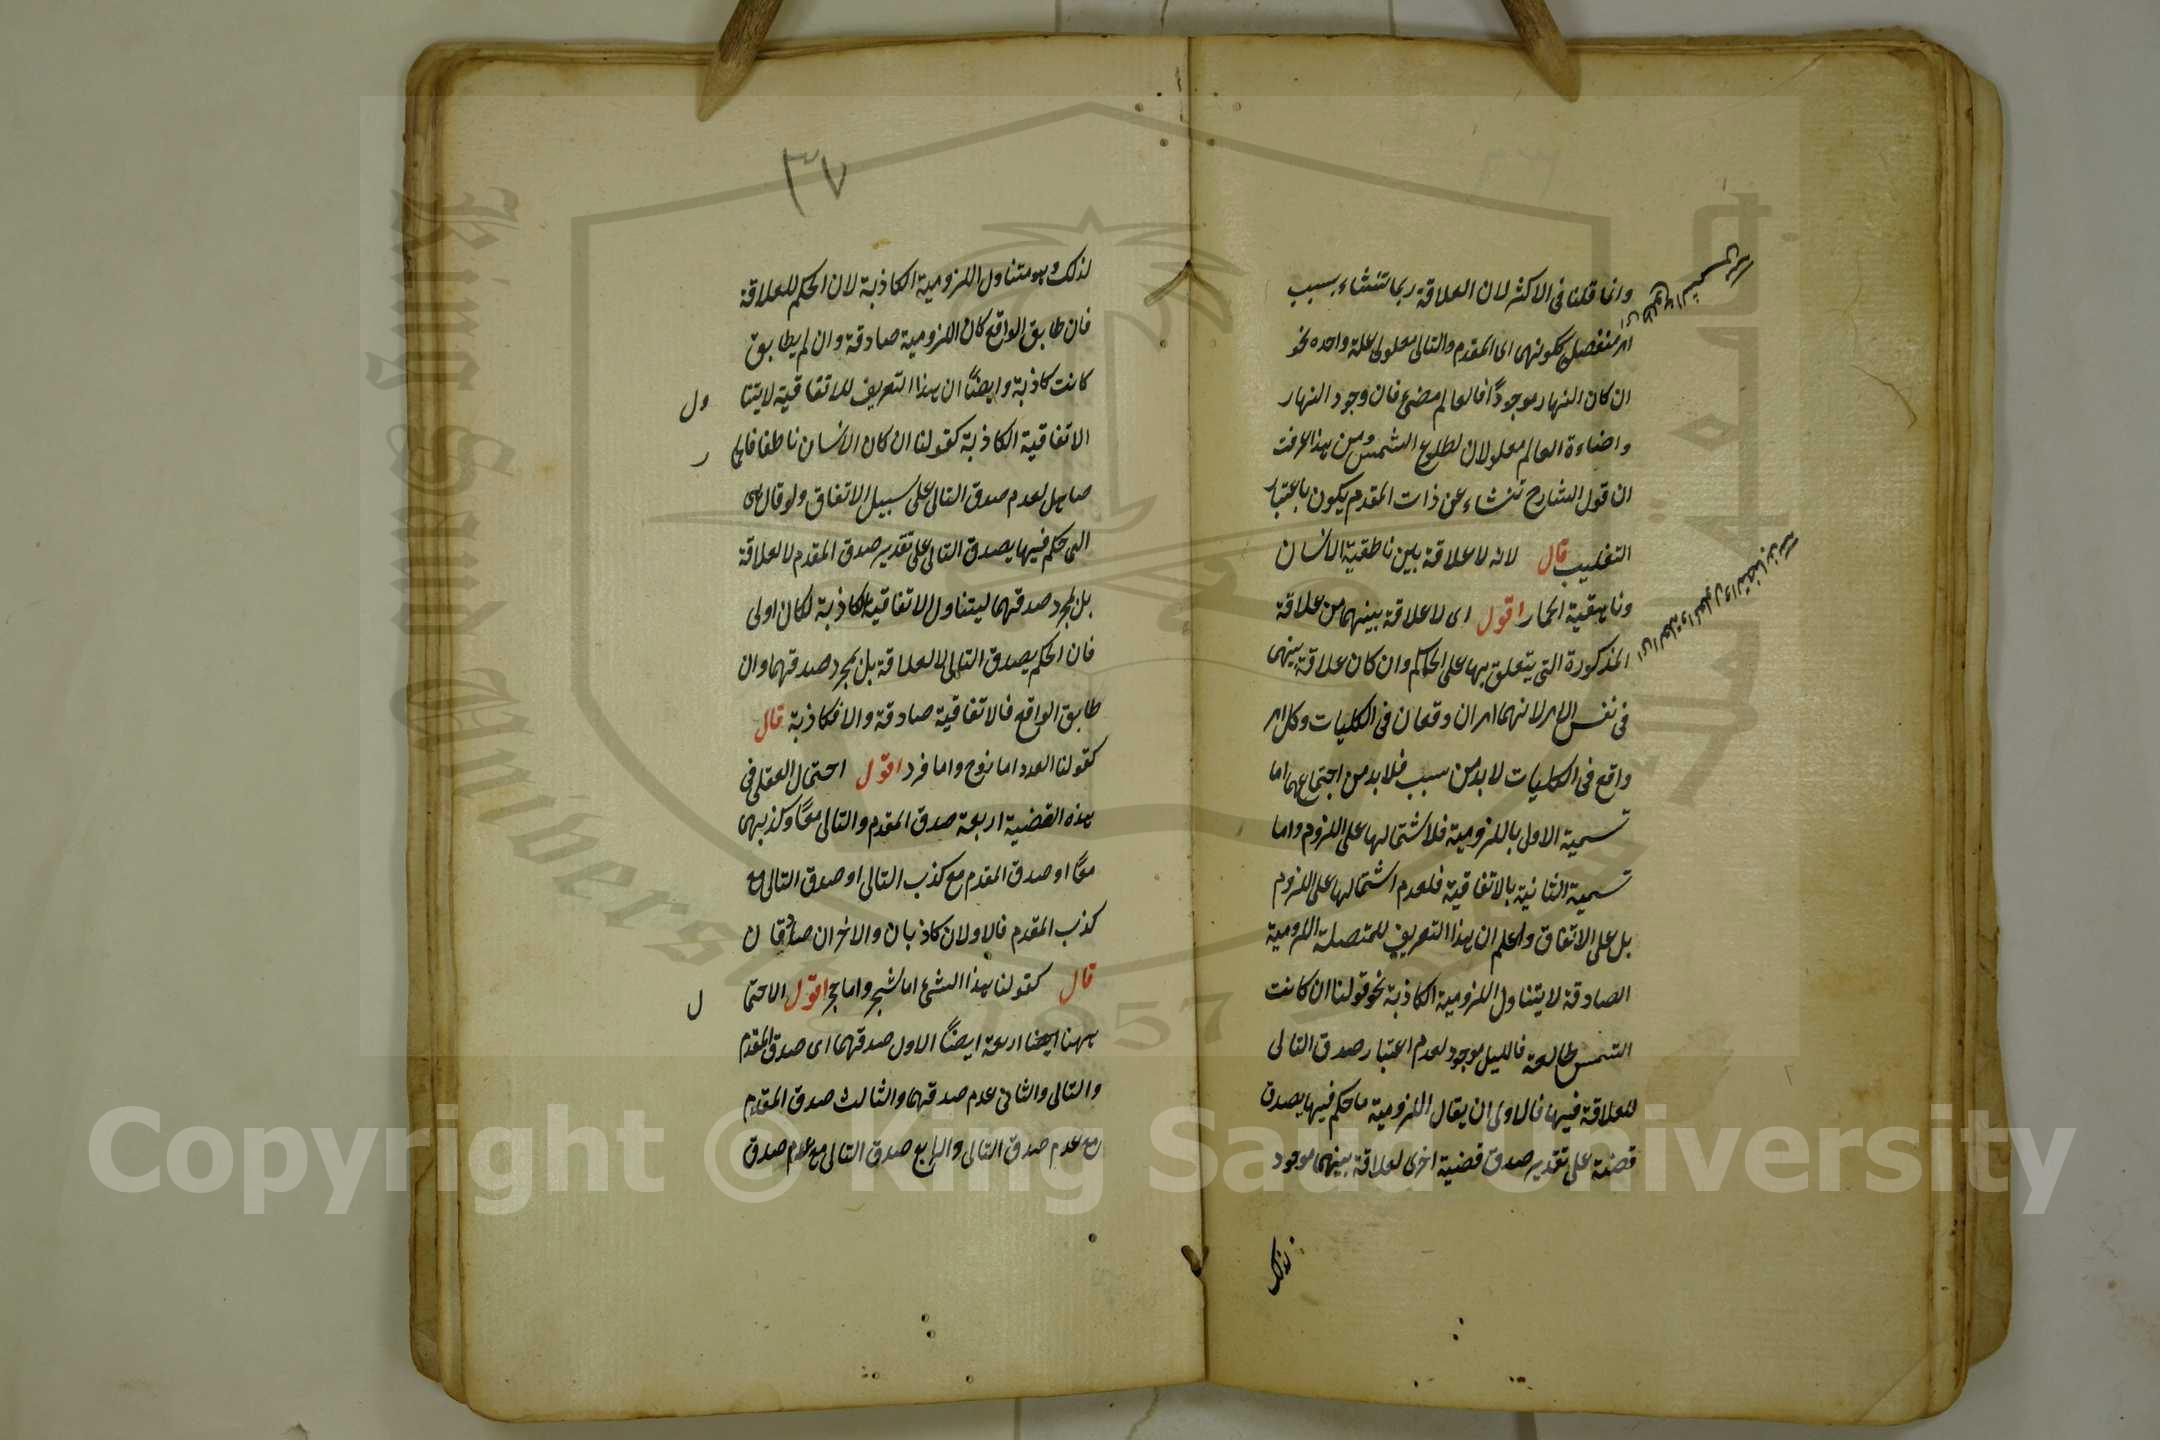 وانما قلنا فى الاكثر لان العلاقة ربما تنشاء بسبب
امر منفصل ككونهما اى المقدم والتالى معلولى علة واحده نحو
ان كان النهار موجودًا فالعالم مضئ فان وجود النهار
واضاءة العالم معلولان لطلوع الشمس ومن هذا عرفت
ان قول الشارح تنشاء عن ذات المقدم يكون باعتبار
التغليب قال لانه لا علاقة بين ناطقية الانسان
وناهقية الحمار اقول اى لا علاقة بينهما من علاقة
المذكورة التى يتعلق بها على الحاكم وان كان علاقة بينهما
فى نفس الامر لانهما امران وقعان فى الكليات وكل امر
واقع فى الكليات لا بد من سبب فلا بد من اجتماعهما اما
تسمية الاول باللزومية فلاشتمالها على اللزوم واما
تسمية الثانية بالاتفاقية فلعدم اشتمالها على اللزوم
بل على الاتفاق واعلم ان هذا التعريف للمتصلة اللزومية
الصادقة لا يتناول اللزومية الكاذبة نحو قولنا ان كانت
الشمس طالعة فالليل موجود لعدم اعتبار صدق التالى
للعلاقة فيها فالاولى ان يقال اللزومية ما حكم فيها بصدق
قضية على تقدير صدق قضية اخرى لعلاقة بينهما موجود
لذلك
٣٧
لذلك وهو متناول اللزومية الكاذبة لان الحكم للعلاقة
فان طابق الواقع كان اللزومية صادقة وان لم يطابق
كانت كاذبة وايضًا ان هذا التعريف للاتفاقية لا يتنا ول
الاتفاقية الكاذبة كقولنا ان كان الانسان ناطقا فالحما ر
صاهل لعدم صدق التالى على سبيل الاتفاق ولو قال هى
التى حكم فيها بصدق التالى على تقدير صدق المقدم لا لعلاقة
بل لمجرد صدقهما ليتناول الاتفاقية الكاذبة لكان اولى
فان الحكم بصدق التالى لا لعلاقة بل لمجرد صدقهما وان
طابق الواقع فالاتفاقية صادقة والا فكاذبة قال
كقولنا العدد اما زوج واما فرد اقول احتمال العقلى فى
هذه القضية اربعة صدق المقدم والتالى معًا وكذبهما
معًا او صدق المقدم مع كذب التالى او صدق التالى مع
كذب المقدم فالاولان كاذبان والاخران صادقان
قال كقولنا هذا الشئ اما شجر واما حجر اقول الاحتما ل
ههنا ايضا اربعة ايضًا الاول صدقهما اى صدق المقدم
والتالى والثانى عدم صدقهما والثالث صدق المقدم
مع عدم صدق التالى والرابع صدق التالى مع عدم صدق
Copyright © King Saud University
King Saud University
1957